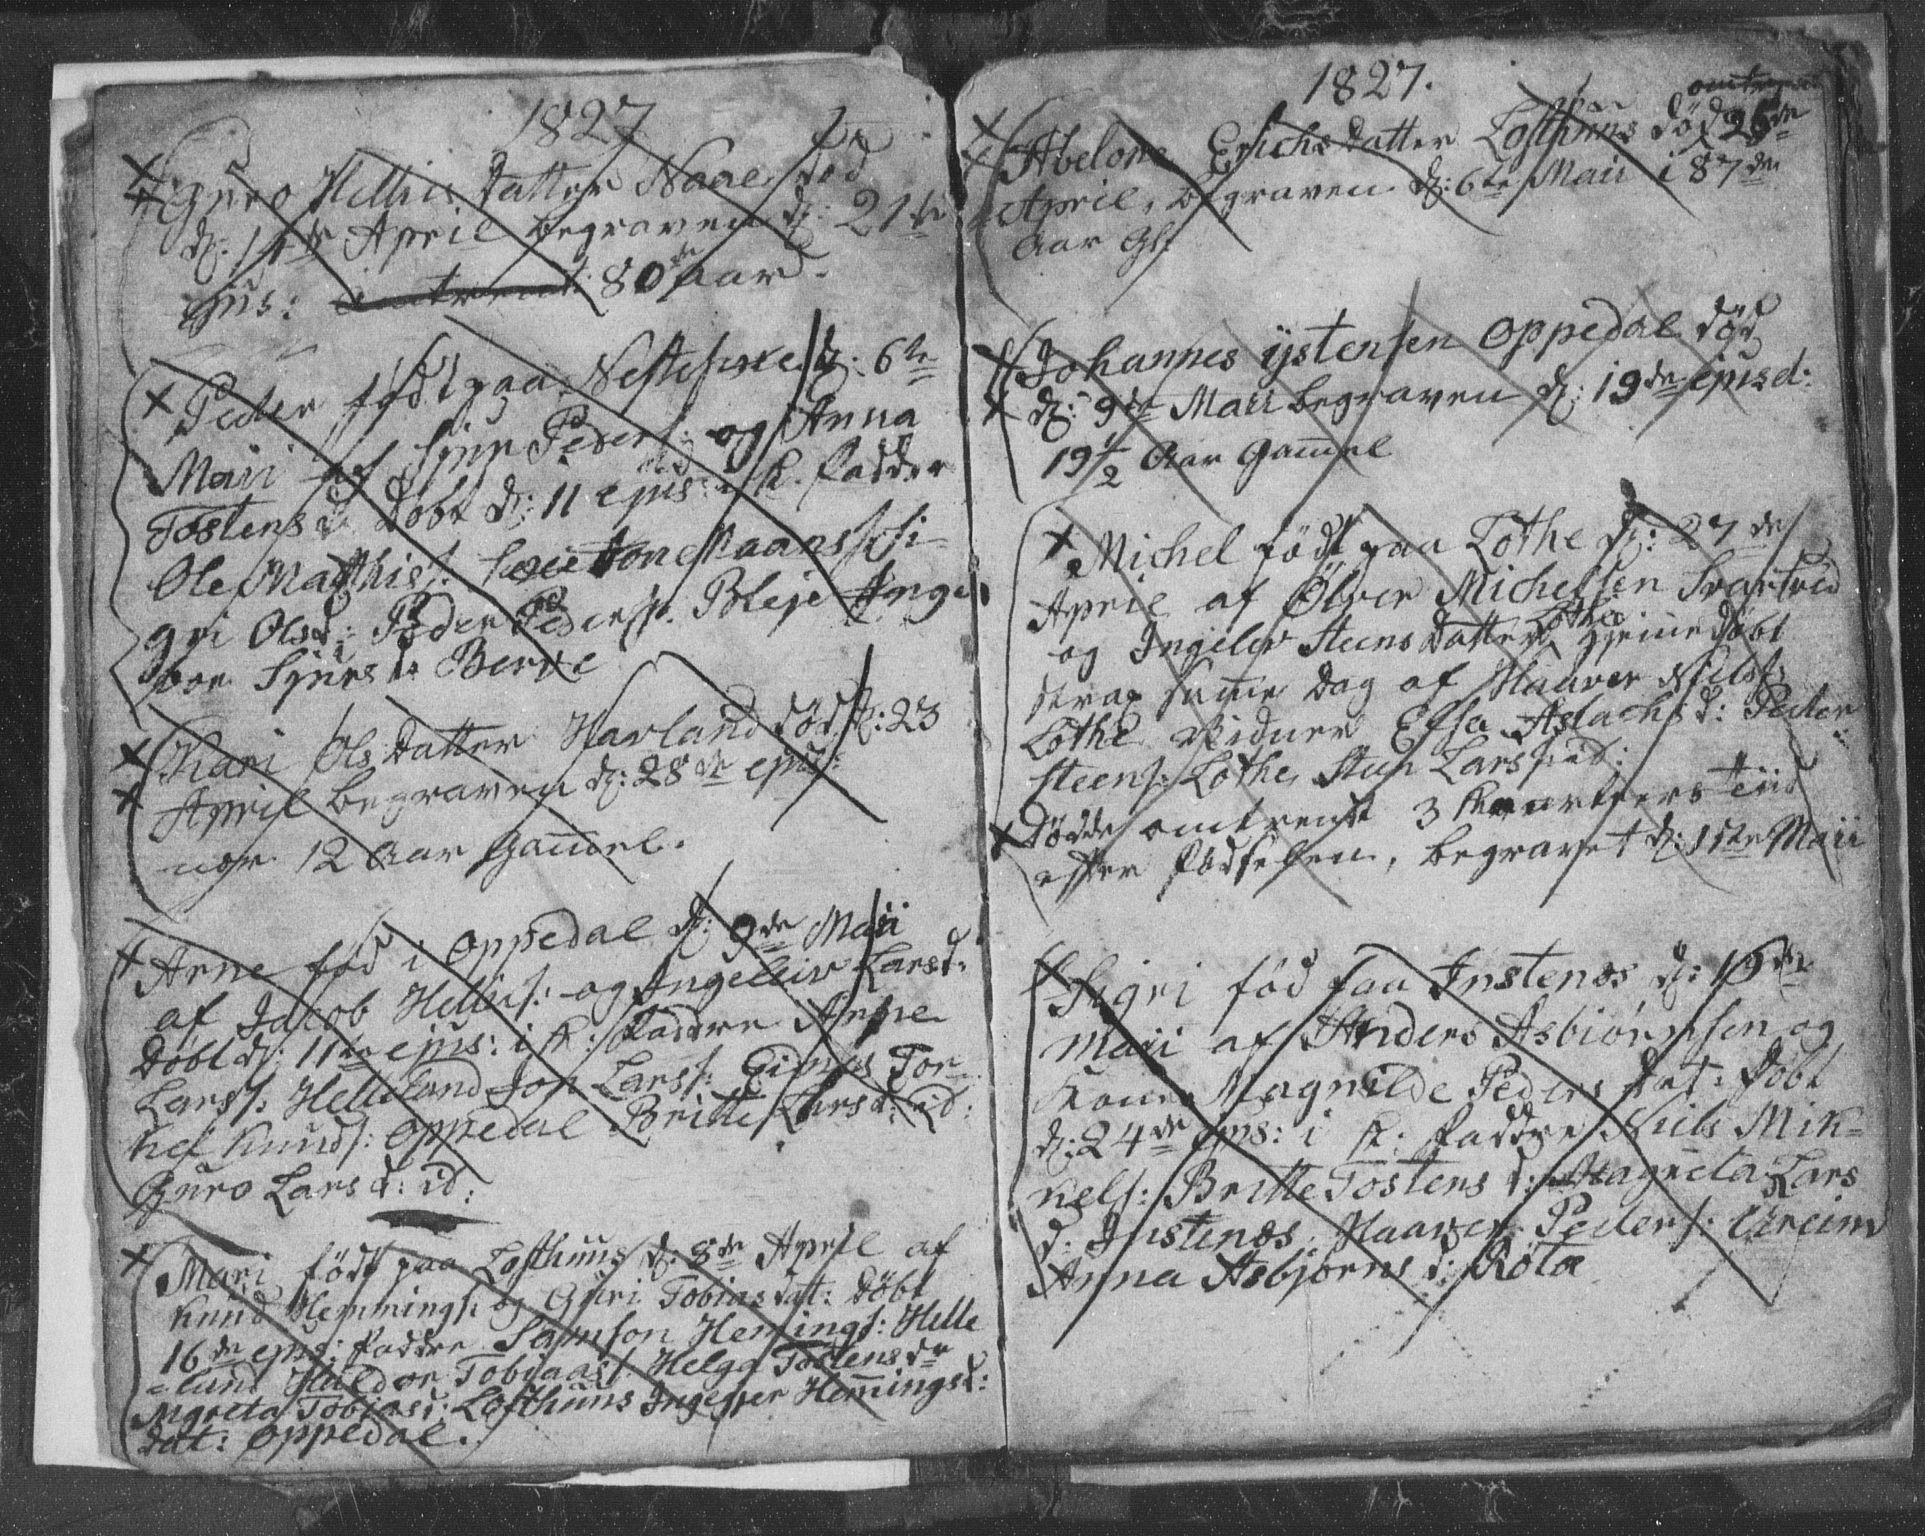 1827
Guro Hellis Datter Naae død
d: 14de April begraven d: 21de
ejus: omtrent 80 Aar.
Peder født paa d: 6te
Maii af Siur Peders: og Anna
Tostens d: Døbt d: 11 ejus: i K. Faddere
Ole Mathis: Jone
gri Olsd: Peder Peders: Bleje Inge
bor Siurs d: Berve
Kari Ols Datter Harland død d: 23
April begraven d: 28de ejus:
12 Aar Gamel.
Arne fød i Oppedal d: 9de Maii
af Jacob Hellis: og Ingeleiv Larsd:
Døbt d: 11te ejus: i K: Faddere Arne
Lars: Helleland Jon Lars: Eidnes Tor-
kel Knuds: Oppedal Britte Larsd: id:
Guro Lars d: id:
Mari født paa Lofthuus d: 8de April af
Knud Hemmings: og Guri Tobias dat: Døbt
16de ejus: Faddere Samson Hemings: Helle
land Haldor Tobiaas: Helga Tostens dr
Mgreta Tobias d: Lofthuus Ingeper Hemingsd:
dat: Oppedal.
1827.
omtrent
Abelone Erichs Datter Lofthuus død 26de
April, begraven d: 6te Maii i 87de
Aar Gl:
Johannes ijstensen Oppedal død
d: 9de Maii begraven d: 19de ejusd:
19 1/2 Aar Gamel
Michel født paa Lothe d: 27de
April af Ølver Michelsen Svartved
og Ingelev Steens Datter Lothe Hjeme Døbt
strax same Dag af Haaver Niels:
Lothe Vidner Elsa Aslachs d: Peder
Steens: Lothe, Sten Lars: id:
døde omtrent 3 Kvarteers Tiid
efter Fødselen, begravet d: 15te Maii
Sigri fød paa Instenæs d: 19de
Maii af Anders Asbiørnsen og
Kone Magnilde Peders Dat: Døbt
d: 24de ejus: i K: Faddere Niels Mik-
kels: Britte Tostens d: Magreta Lars
d: Instenæs, Haaver Peders: Ureim
Anna Asbjørns d: Røtæ